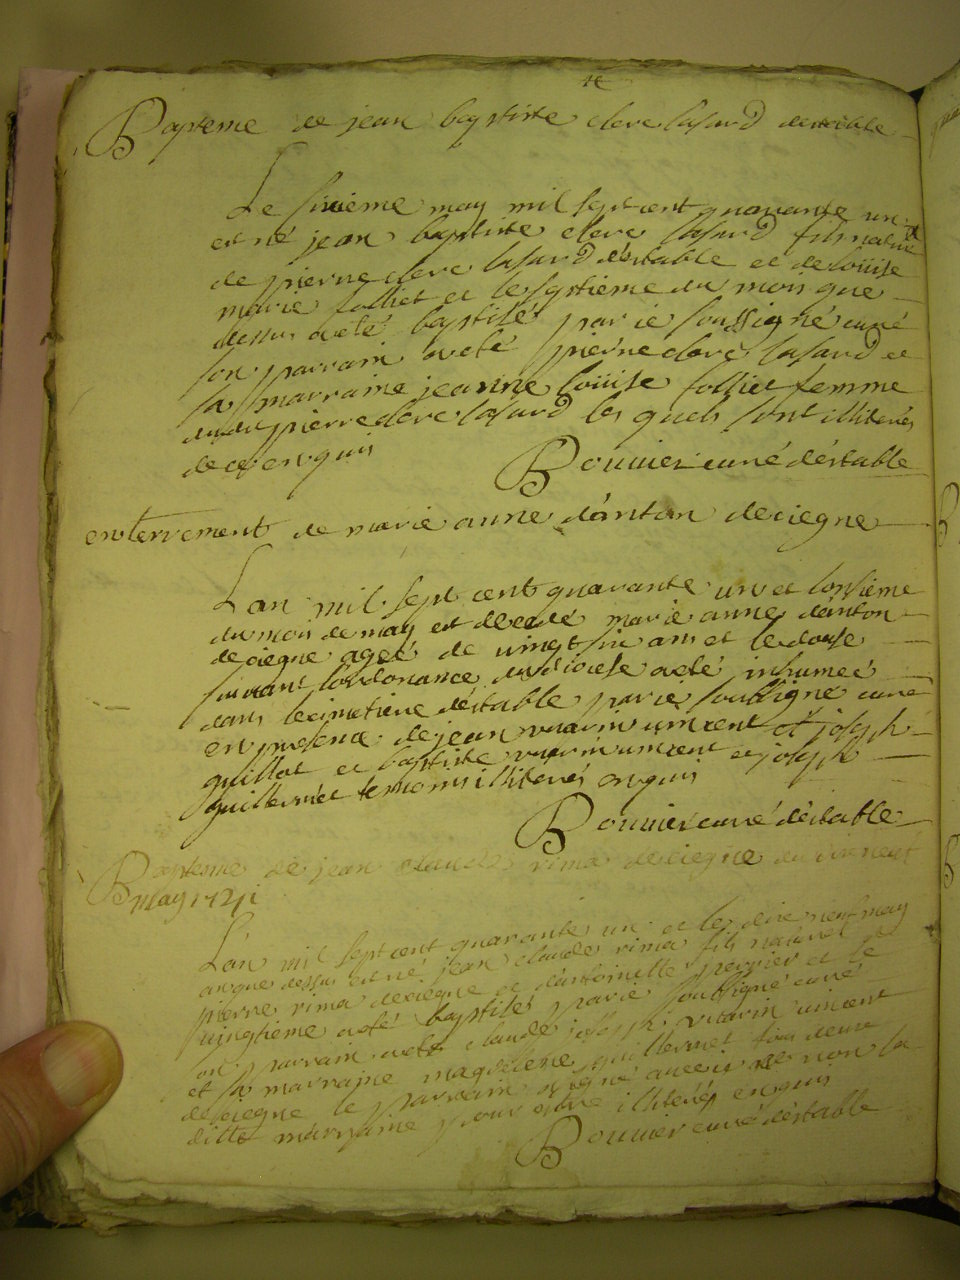 Bapteme de jean baptiste clerc lasard destable
Le sixieme may mil sept cent quarante un
est né jean baptiste clerc lasard fils naturel
de pierre clerc lasard d'estable et de loüise
marie folliet et le septieme du mois que
dessus a eté baptisé par ie soussigné curé
son parrain a eté pierre clerc lasard et
sa marraine jeanne loüise folliet femme
dudit pierre clerc lasard les quels sont illiterés
de ce enquis
Bouvier curé d'estable
enterrement de marie anne d'anton deciegne
L'an mil sept cent quarante un et l'onsieme
du mois de may est decedé marie anne d'anton
deciegne ageé de vingt six ans et le douse
suivant l'ordonance du diocese a eté inhumeé
dans le cimetiere d'estable par ie soussigné curé
en presence de jean vincent et joseph
guillot et baptiste vincent et joseph
guillermet temoins illiterés enquis
Bouvier curé d'estable
Bapteme de jean claude rima deciegne du dix neuf
may 1741
L'an mil sept cent quarante un et le dix neuf may
an que dessus est né jean claude rima fils naturel de
pierre rima deciegne et d'antoinette perrier et le
vingtieme a eté baptisé par ie soussigné curé
son parrain a eté claude joseph vincent
et sa marraine magdelene guillermet tous deux
deciegne le parrain a signé avec ie non la
ditte marraine pour estre illiteré enquis
Bouvier curé d'estable